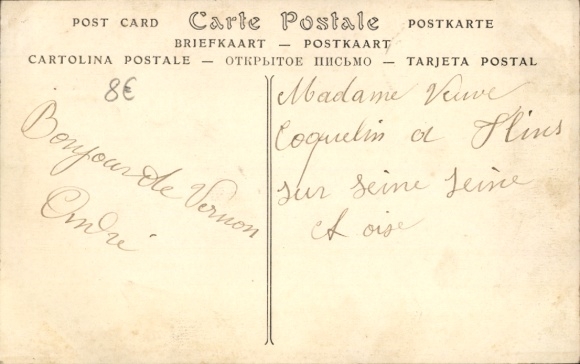 POST CARD Carte Postale POSTKARTE
BRIEFKAART — POSTKAART
CARTOLINA POSTALE — ОТКРЫТОЕ ПИСЬМО — TARJETA POSTAL
8€
Bonjour de Vernon
André
Madame Veuve
Coquelin a Flins
sur seine seine
et oise